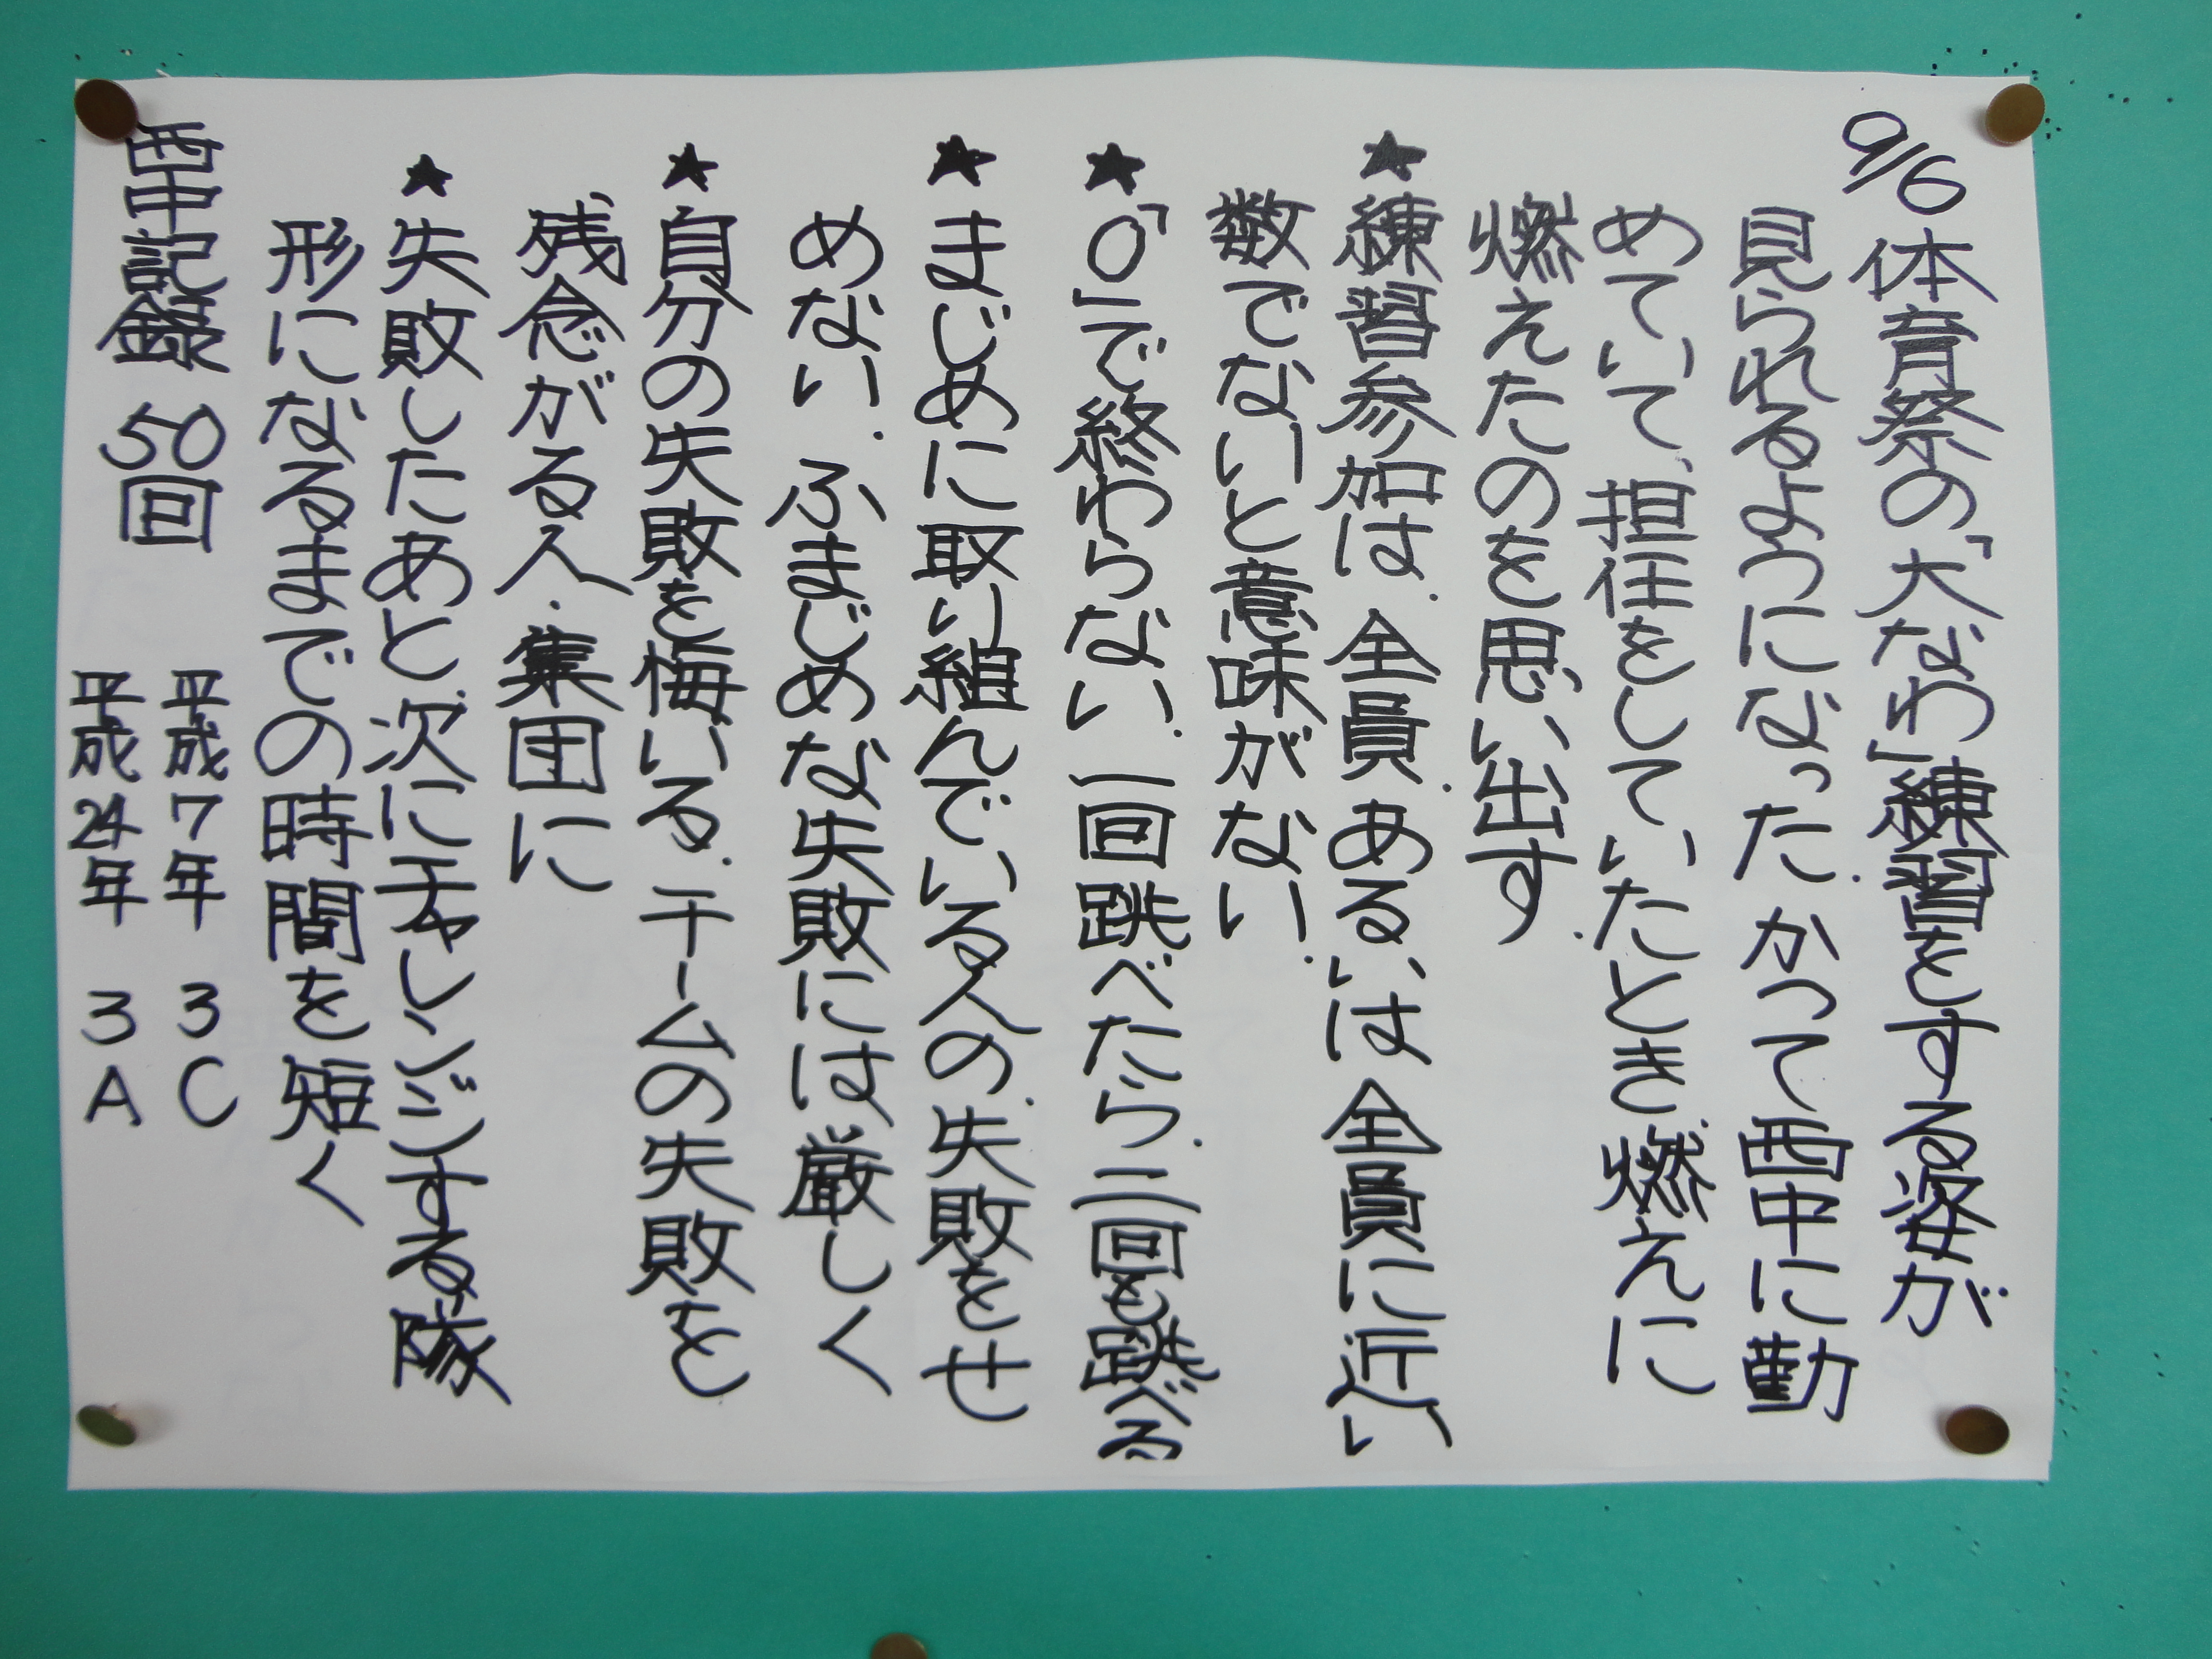 9/6 体育祭の「大なわ」練習をする姿が
見られるようになった。かつて西中に勤
めていて、担任をしていたとき、燃えに
燃えたのを思い出す。
★練習参加は、全員、あるいは全員に近い
数でないと意味がない。
★「0」で終わらない、一回跳べたら、二回も跳べる
★まじめに取り組んでいる人の、失敗をせ
めない、ふまじめな失敗には厳しく
★自分の失敗を悔いる、チームの失敗を
残念がる人、集団に
★失敗したあと、次にチャレンジする隊
形になるまでの時間を短く
西中記録 50回
平成7年 3C
平成24年 3A